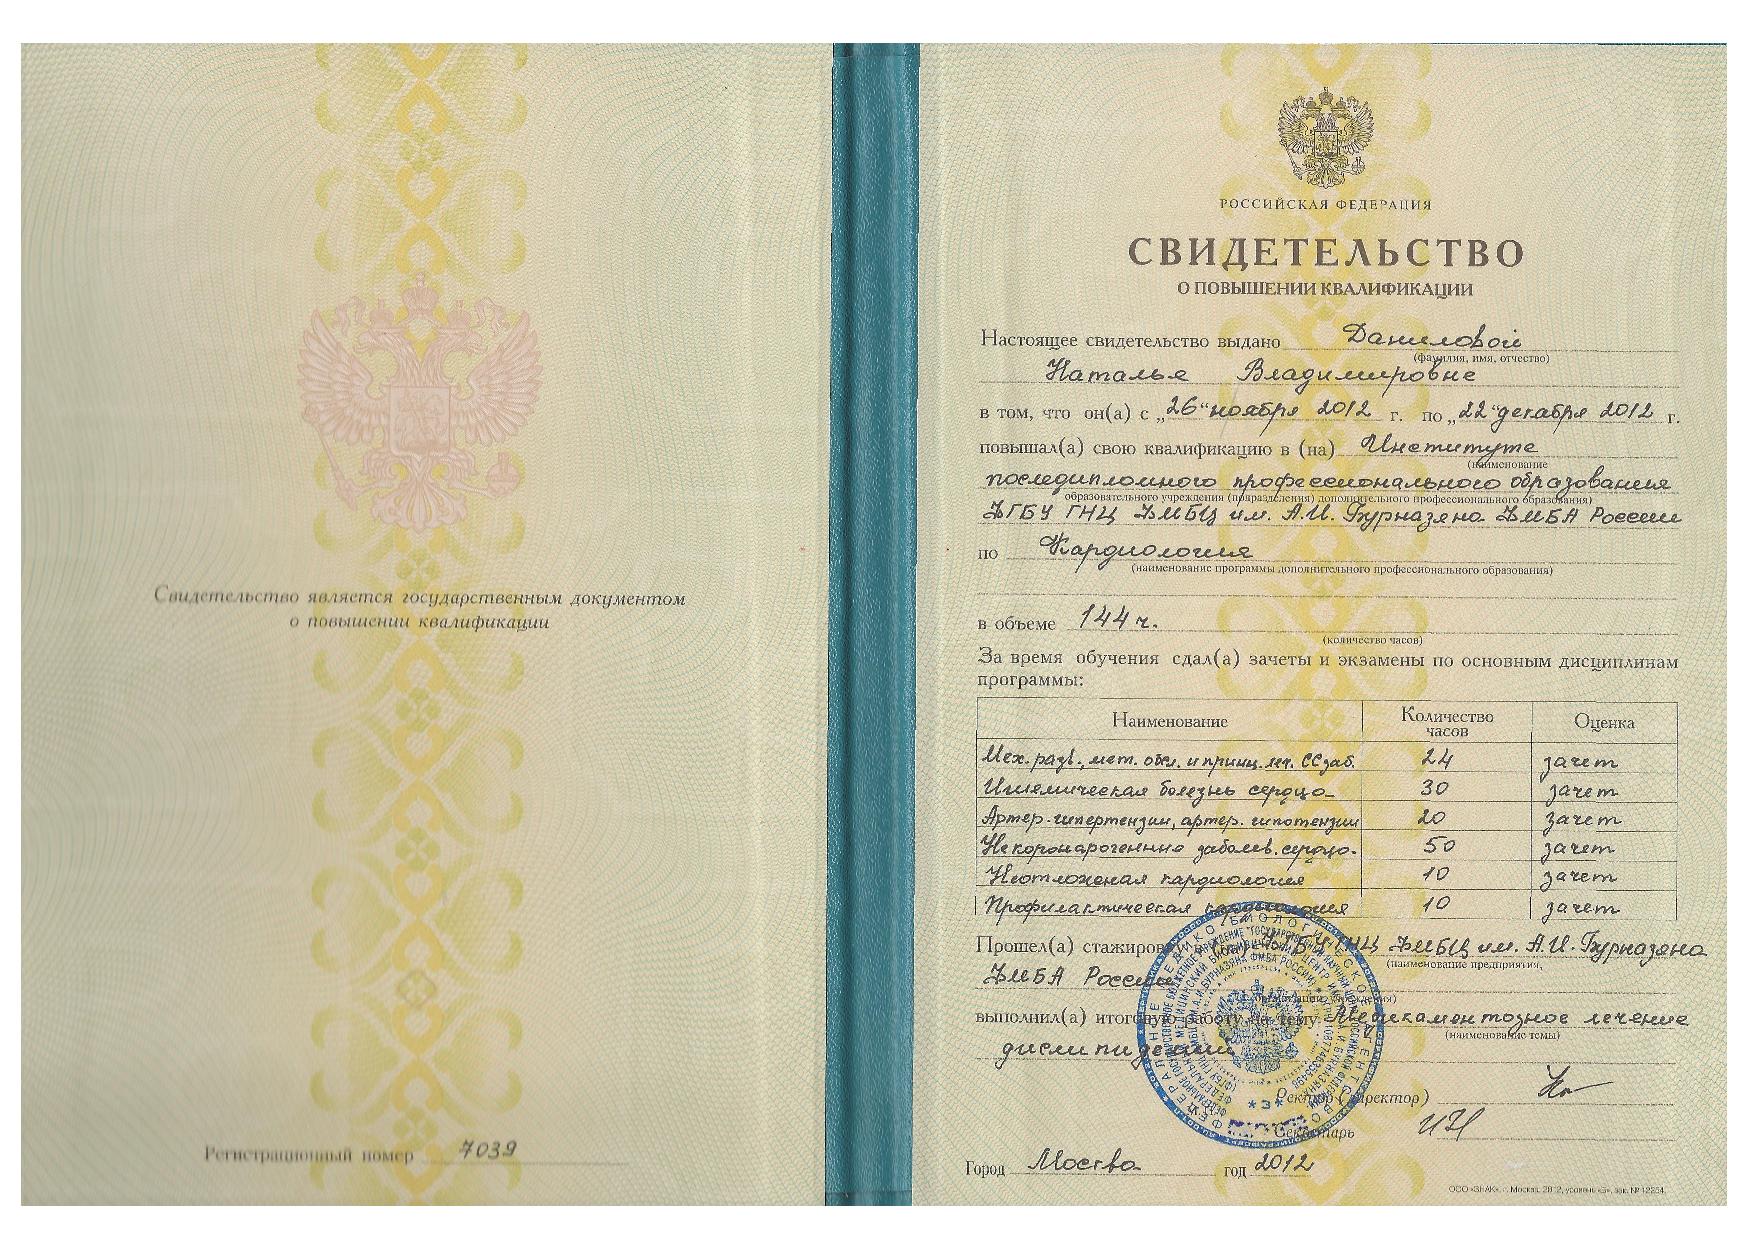 Свидетельство является государственным документом
о повышении квалификации
Регистрационный номер 7039
РОССИЙСКАЯ ФЕДЕРАЦИЯ
СВИДЕТЕЛЬСТВО
О ПОВЫШЕНИИ КВАЛИФИКАЦИИ
Настоящее свидетельство выдано Даниловой
(фамилия, имя, отчество)
Наталье Владимировне
в том, что он(а) с „26“ ноября 2012 г. по „22“ декабря 2012 г.
повышал(а) свою квалификацию в (на) Институте
(наименование
последипломного профессионального образования
образовательного учреждения (подразделения) дополнительного профессионального образования)
ФГБУ ГНЦ ФМБЦ им. А.И. Бурназяна ФМБА России
по Кардиология
(наименование программы дополнительного профессионального образования)
в объеме 144 ч.
(количество часов)
За время обучения сдал(а) зачеты и экзамены по основным дисциплинам
программы:
Наименование Количество часов Оценка
Мех. разв., мет. обсл. и принц. леч. ССзаб. 24 зачет
Ишемическая болезнь сердца 30 зачет
Артер. гипертензии, артер. гипотензии 20 зачет
Некоронарогенные заболев. сердца. 50 зачет
Неотложная кардиология 10 зачет
Профилактическая кардиология 10 зачет
Прошел(а) стажировку в (на) ФГБУ ГНЦ ФМБЦ им. А.И. Бурназяна
(наименование предприятия,
ФМБА России
организации, учреждения)
выполнил(а) итоговую работу на тему Медикаментозное лечение
(наименование темы)
дислипидемий
Ректор (директор)
Секретарь
Город Москва год 2012
ООО «ЗНАК», г. Москва, 2012, уровень «Б», зак. № 12254.